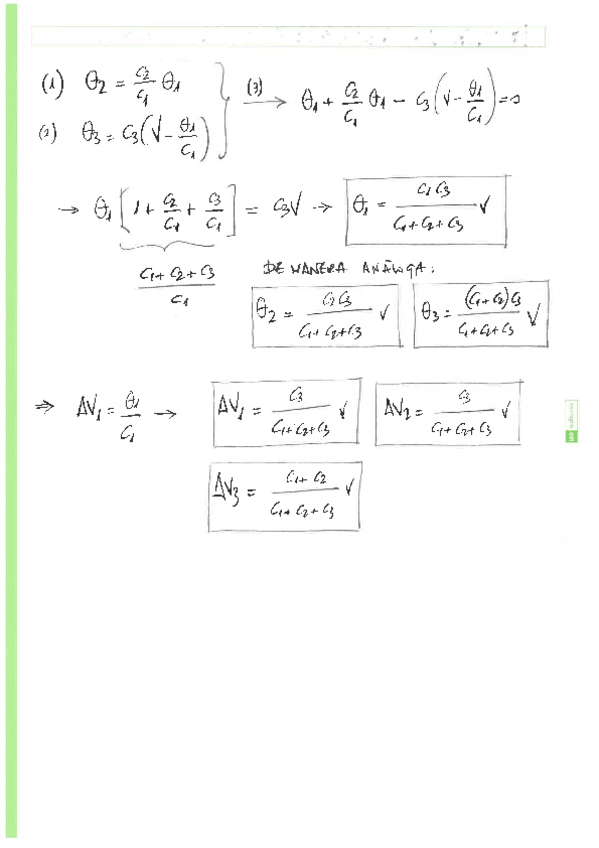 (1) Q₂ = C₂/C₁ Q₁ } (3) → Q₁ + C₂/C₁ Q₁ − C₃(V − Q₁/C₁) = 0
(2) Q₃ = C₃(V − Q₁/C₁)
→ Q₁[1 + C₂/C₁ + C₃/C₁] = C₃V → Q₁ = C₁C₃/(C₁+C₂+C₃) V
(C₁+C₂+C₃)/C₁
DE MANERA ANÁLOGA:
Q₂ = C₂C₃/(C₁+C₂+C₃) V Q₃ = (C₁+C₂)C₃/(C₁+C₂+C₃) V
⇒ ΔV₁ = Q₁/C₁ → ΔV₁ = C₃/(C₁+C₂+C₃) V ΔV₂ = C₃/(C₁+C₂+C₃) V
ΔV₃ = (C₁+C₂)/(C₁+C₂+C₃) V